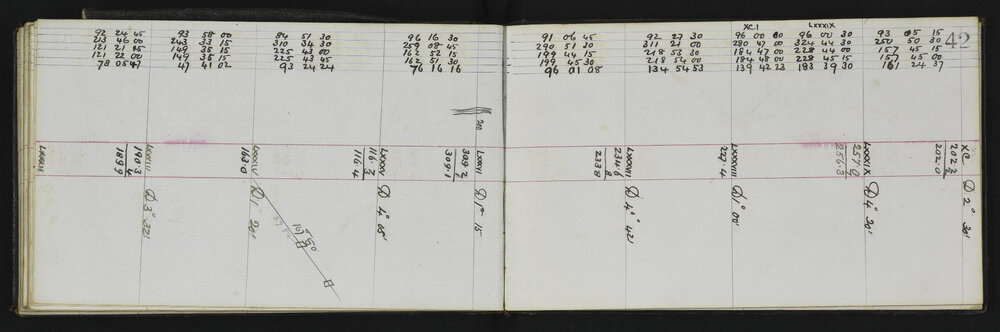 92 24 45
213 46 00
121 21 15
121 22 00
93 58 00
243 33 15
149 35 15
149 36 15
47 41 02
84 51 30
310 34 30
225 43 00
225 43 45
93 24 24
96 16 30
259 08 45
162 52 15
162 51 30
76 16 16
91 06 45
290 51 30
199 44 15
199 45 30
96 01 08
92 27 30
311 21 00
218 53 30
218 54 00
134 54 53
XCI
96 00 00
280 47 00
184 47 00
184 48 00
139 42 23
LXXXIX
96 00 30
324 44 30
228 44 00
228 45 15
183 39 30
93 05 15
250 50 30
157 45 15
157 45 00
161 24 37
42
LXXXII
LXXXIII
190.3
189.9
D 3° 32'
LXXXIV
163.0
D 1° 20'
LXXXV
116.3
116.4
D 4° 05'
200
LXXXVI
309.2
309.1
D 1° 15
LXXXVII
234.6
233.8
D 4° 42'
LXXXVIII
227.4
D 1° 00'
LXXXIX
257.0
256.3
D 4° 20'
XC
202.2
202.0
D 2° 30'